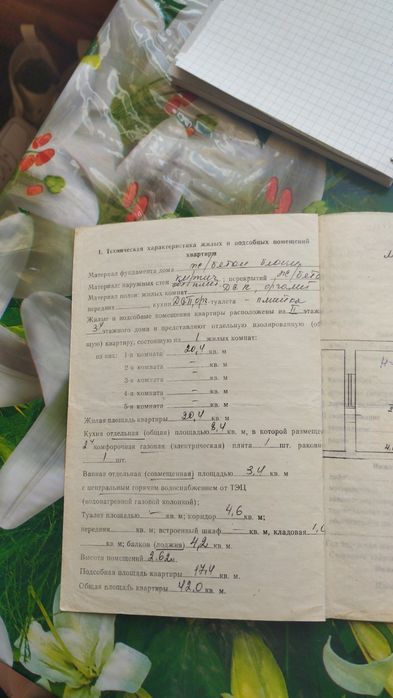 1. Техническая характеристика жилых и подсобных помещений
квартиры
Материал фундамента дома ж/бетон блоки
Материал: наружных стен кирпич ; перекрытий ж/бето
Материал полов: жилых комнат ДВП, оргалит
передняя кухни ДВП, орг туалета - плитка
Жилые и подсобные помещения квартиры расположены на II этаже
3х этажного дома и представляют отдельную изолированную (об
щую) квартиру, состоящую из 1 жилых комнат:
из них: 1-я комната 20,4 кв. м
2-я комната – кв. м
3-я комната – кв. м
4-я комната – кв. м
5-я комната – кв. м
Жилая площадь квартиры 20,4 кв. м
Кухня отдельная (общая) площадью 8,4 кв. м, в которой размещен
2х комфорочная газовая (электрическая) плита 1 шт. ракови
1 шт.
Ванная отдельная (совмещенная) площадью 3,4 кв. м
с центральным горячим водоснабжением от ТЭЦ
(водонагревной газовой колонкой);
Туалет площадью – кв. м; коридор 4,6 кв. м;
передняя кв. м; встроенный шкаф – кв. м, кладовая 1,0
кв. м; балкон (лоджия) 4,2 кв. м.
Высота помещений 2.62 м.
Подсобная площадь квартиры 17,4 кв. м.
Общая площадь квартиры 42,0 кв. м.